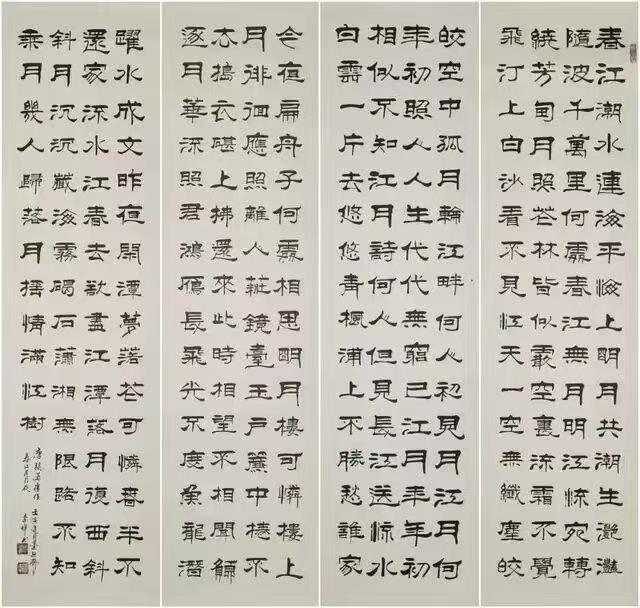 春江潮水連海平海上明月共潮生灩灩
隨波千萬里何處春江無月明江流宛轉
繞芳甸月照花林皆似霰空裏流霜不覺
飛汀上白沙看不見江天一空無纖塵皎
皎空中孤月輪江畔何人初見月江月何
年初照人人生代代無窮已江月年年初
相似不知江月詩何人但見長江送流水
白雲一片去悠悠青楓浦上不勝愁誰家
今夜扁舟子何處相思明月樓可憐樓上
月徘徊應照離人粧鏡臺玉戶簾中捲不
去擣衣碪上拂還來此時相望不相聞願
逐月華流照君鴻雁長飛光不度魚龍潛
躍水成文昨夜閒潭夢落花可憐春半不
還家流水江春去欲盡江潭落月復西斜
斜月沉沉藏海霧碣石瀟湘無限路不知
乘月幾人歸落月搖情滿江樹
唐張若虛作
春江花月夜